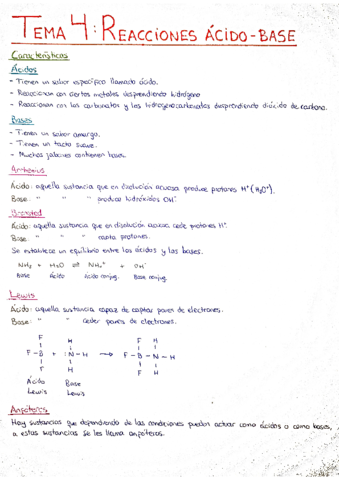 TEMA 4: REACCIONES ÁCIDO-BASE
Características
Ácidos
- Tienen un sabor específico llamado ácido.
- Reaccionan con ciertos metales desprendiendo hidrógeno
- Reaccionan con los carbonatos y los hidrogenocarbonatos desprendiendo dióxido de carbono.
Bases
- Tienen un sabor amargo.
- Tienen un tacto suave.
- Muchos jabones contienen bases.
Arrhenius
Ácido: aquella sustancia que en disolución acuosa produce protones H⁺(H₃O⁺).
Base: " " produce hidróxidos OH⁻.
Brønsted
Ácido: aquella sustancia que en disolución acuosa cede protones H⁺.
Base: " " capta protones.
Se establece un equilibrio entre los ácidos y las bases.
NH₃ + H₂O ⇌ NH₄⁺ + OH⁻
Base Ácido Ácido conjug. Base conjug.
Lewis
Ácido: aquella sustancia capaz de captar pares de electrones.
Base: " " ceder pares de electrones.
F H F H
F-B + :N-H → F-B-N-H
F H F H
Ácido Base
Lewis Lewis
Anfóteros
Hay sustancias que dependiendo de las condiciones pueden actuar como ácidos o como bases,
a estas sustancias se les llama anfóteros.